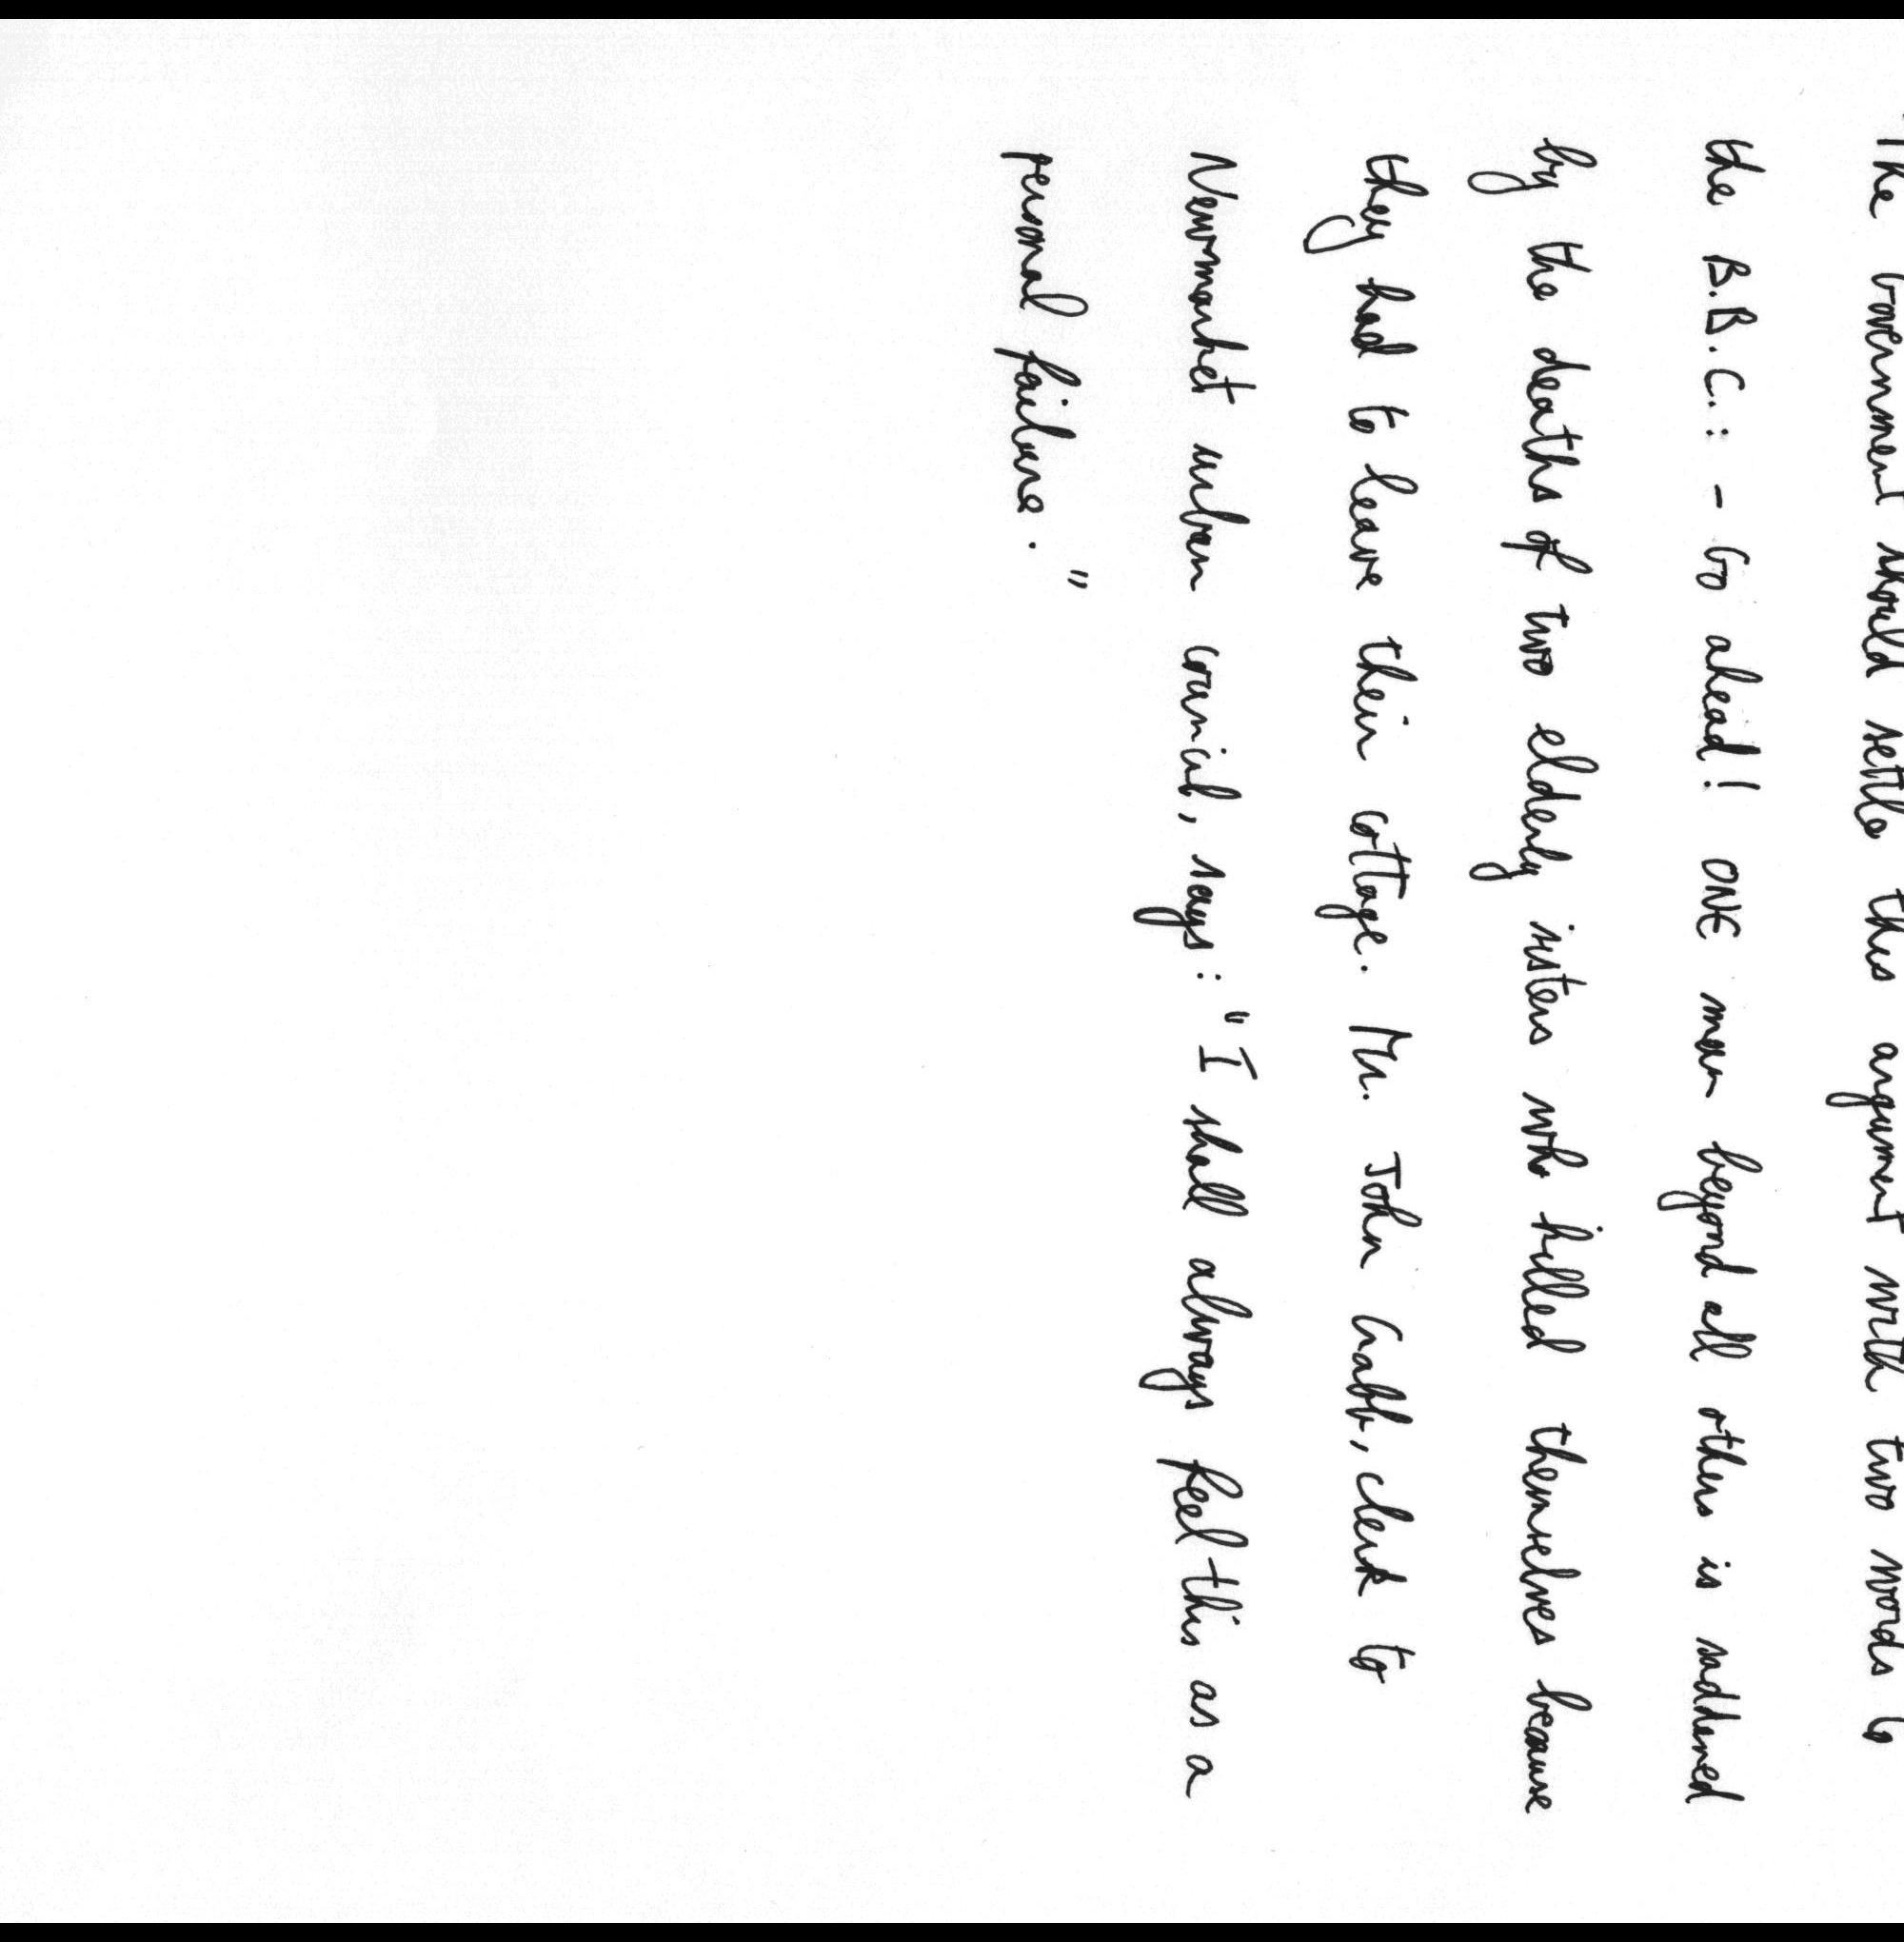 The Government should settle this argument with two words to
the B.B.C.: - Go ahead! ONE man beyond all others is saddened
by the deaths of two elderly sisters who killed themselves because
they had to leave their cottage. Mr. John Gabb, clerk to
Newmarket urban council, says: "I shall always feel this as a
personal failure."